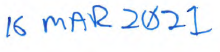 16 MAR 2021